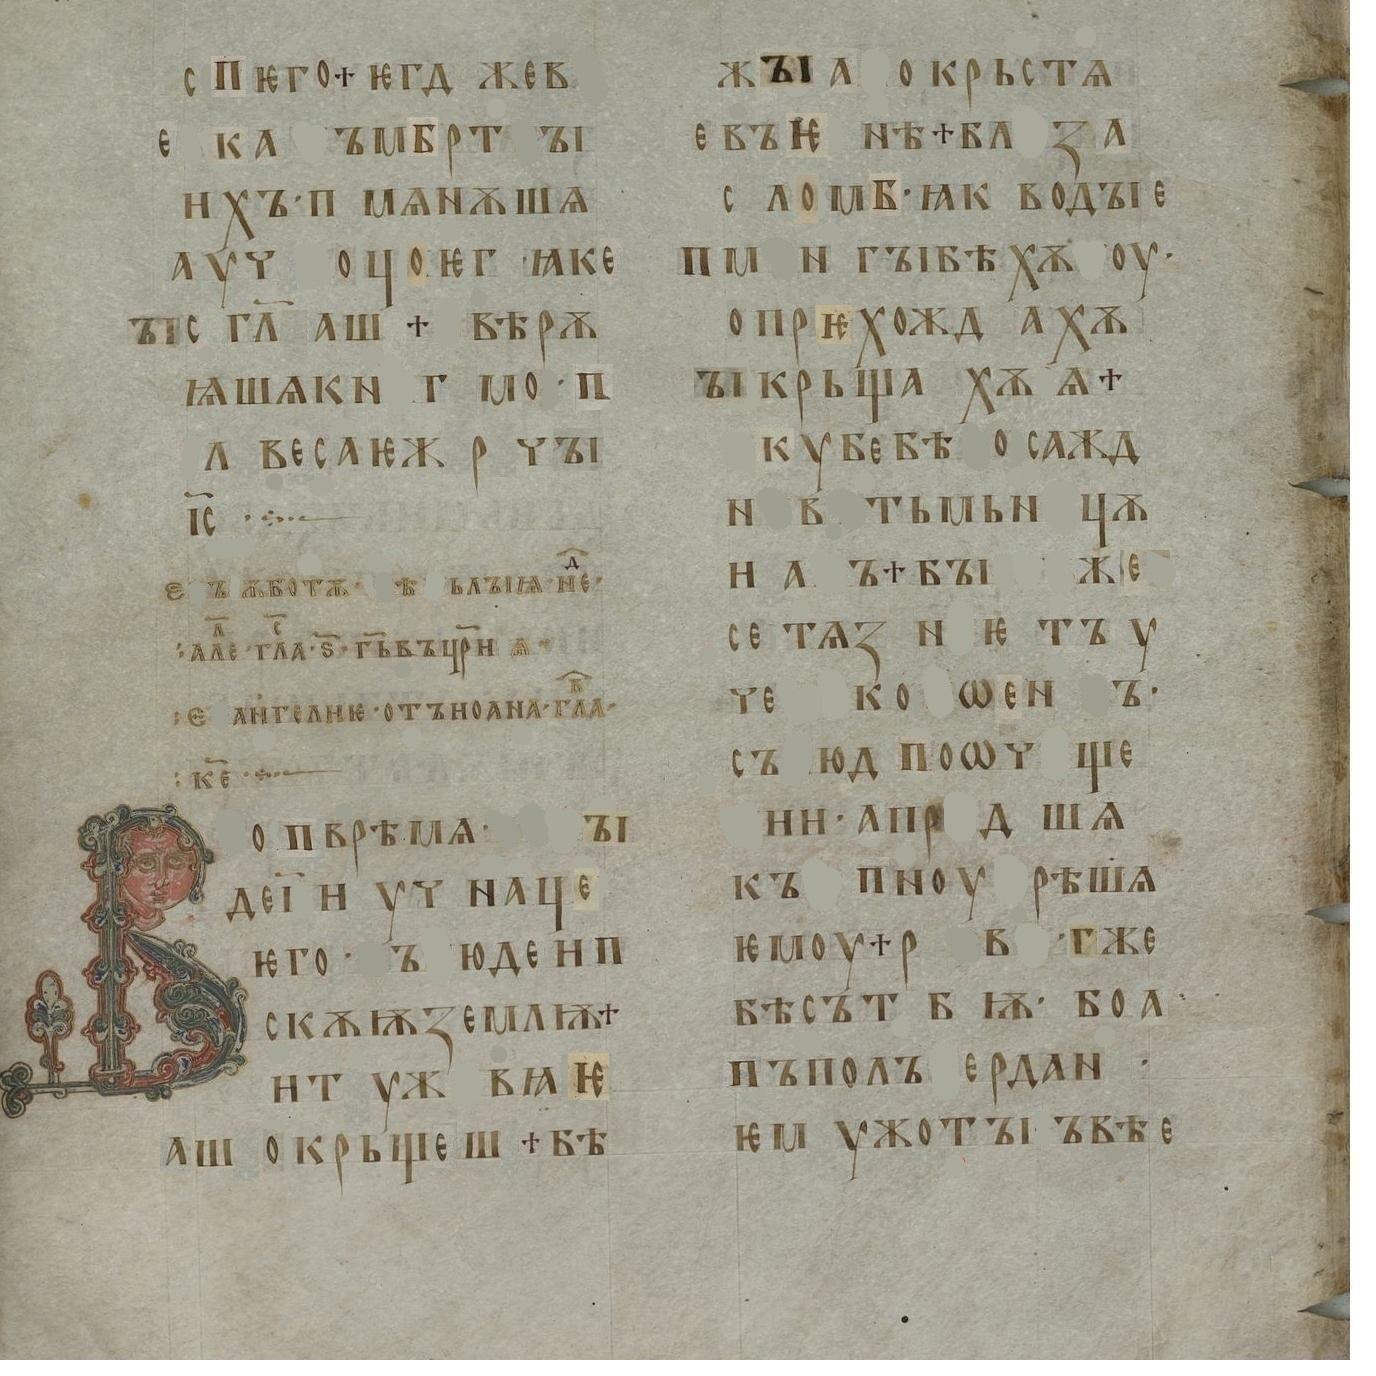 с п ѥго+ ѥгд же в
е ка ъм б рт ъı
н х ъ · п мѧнѫшѧ
а уч оц о ѥг ꙗке
ъı с гл҃ аш + вѣрѫ
ꙗшѧкн г мо · п
л весаѥж р чъı
іс҃
е ъ ѫботѫ · ѣ ълъıꙗ не д҃ ·
: але л҃ гла с҃ · ѕ҃ · гь҃ въцр҃н ѧ ·
: е ангелиѥ · отъиоана · гла в҃ ·
: ке҃
о п врѣмѧ · ъı
деі҃ н уч наце
ѥго · ъ юде н п
скѫѭземлѭ+
нт уж в ꙗ ѥ
аш о крьщеш + бѣ
ж ъı а о крьстѧ
евъ ѥ нѣ + бл з а
с л о м б · ꙗк водъı е
п м н гъıбѣхѫ оу ·
о пр ѥ хожд ахѫ
ъı крьща хѫ ѧ +
к убебѣ о сажд
н в тьмьн цѫ
н а ъ + бъı же
се тѧз н ѥ тъ у
че ко ѡ е н ъ ·
съ юд поѡч ще
нн · апр д шѧ
къ пноу рѣшѧ
ѥмоу + р в · г же
бѣсът б ѭ · боа ·
пъполъ ердан ·
ѥм ужотъı ъвѣ е